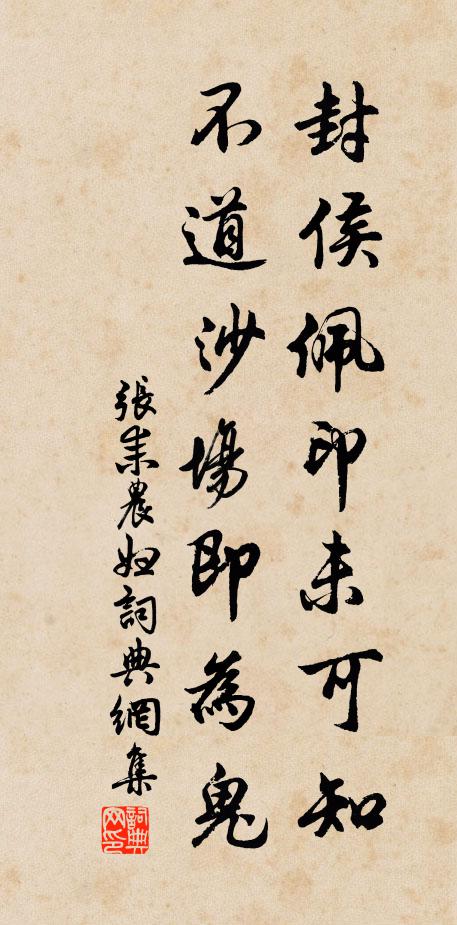 封侯佩印未可知
不道沙場即為鬼
張農詞典網集
詞典网印